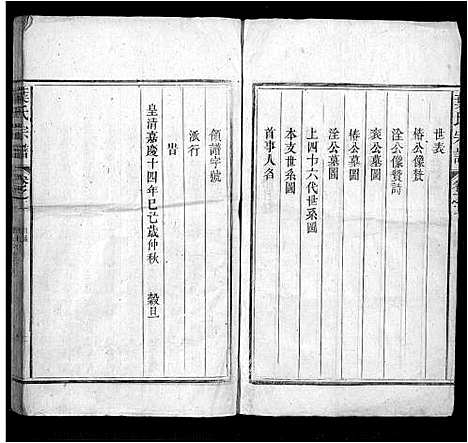 世表
椿公像贊
淦公像贊詩
袞公墓圖
椿公墓圖
淦公墓圖
上四十六代世系圖
本支世系圖
首事人名
領譜字號
派行
旹
皇清嘉慶十四年己巳歲仲秋 穀旦
葉氏宗譜